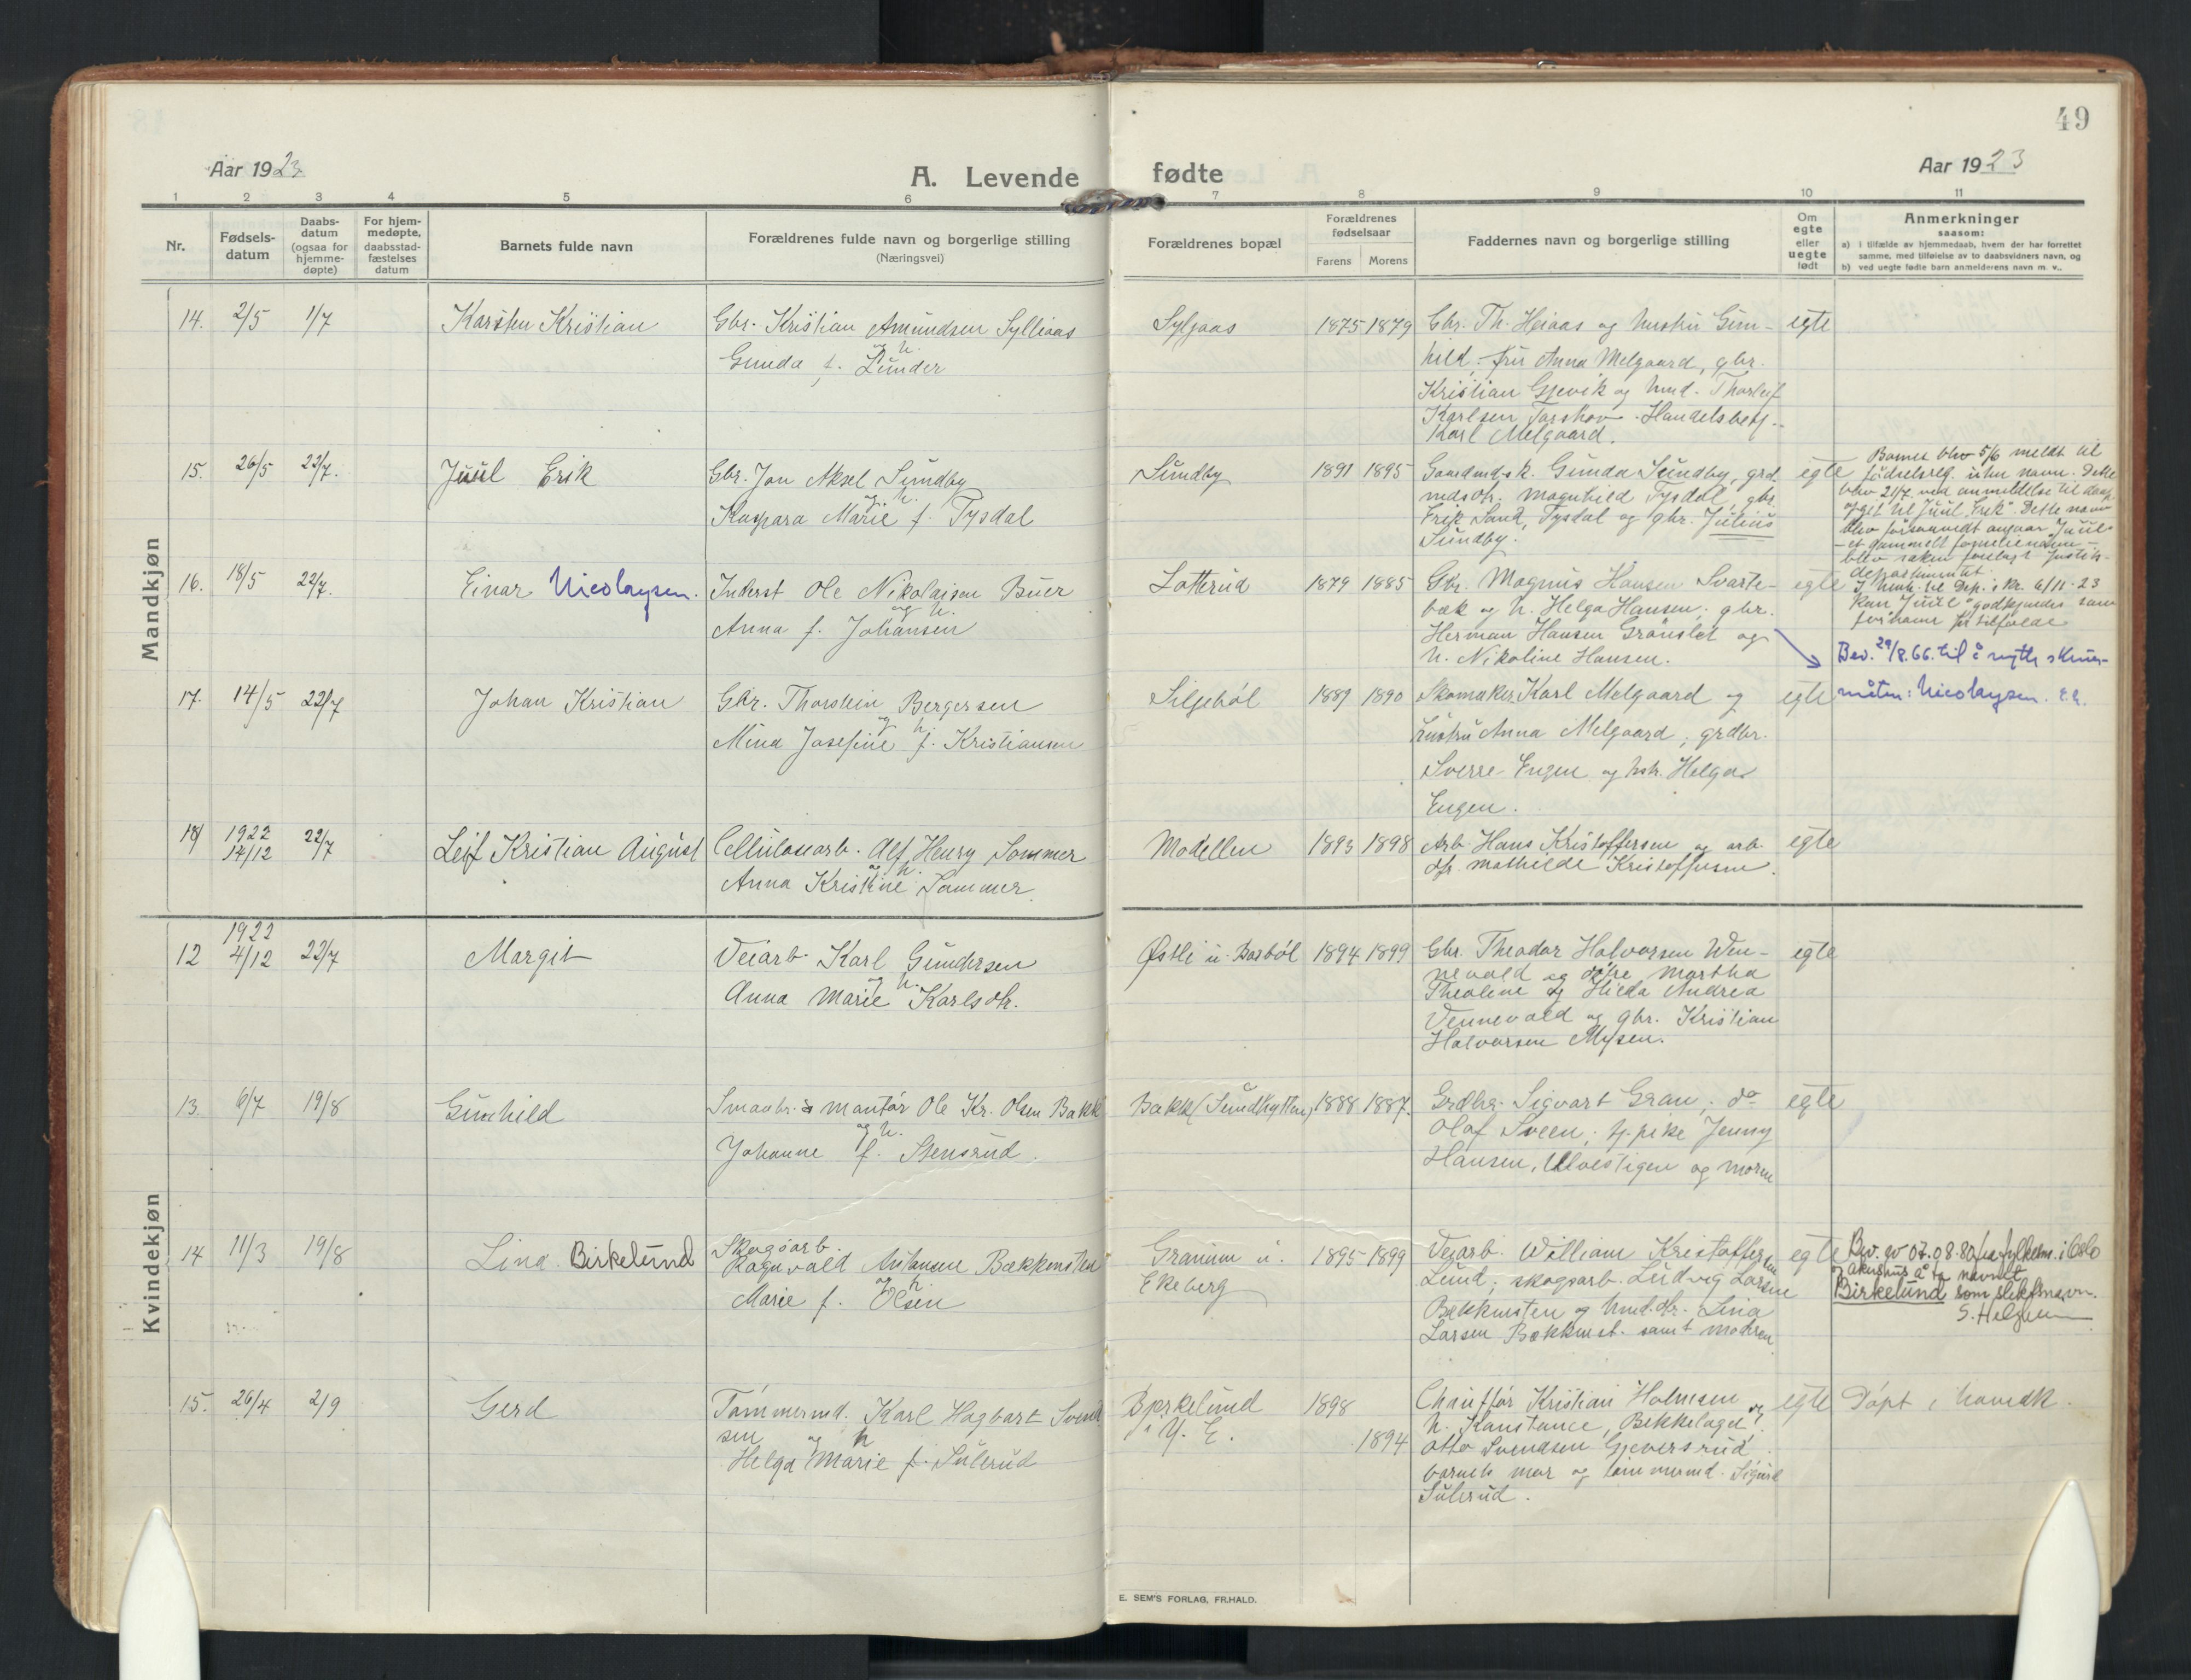 49
Aar 1923
A. Levende
fødte
Aar 1923
1 2 3 4 5 6 7 8 9 10 11
Nr.
Fødsels-
datum
Daabs-
datum
(ogsaa for
hjemme-
døpte)
For hjem-
medøpte,
daabsstad-
fæstelses
datum
Barnets fulde navn
Forældrenes fulde navn og borgerlige stilling
(Næringsvei)
Forældrenes bopæl
Forældrenes
fødselsaar
Farens Morens
Faddernes navn og borgerlige stilling
Om
egte
eller
uegte
født
Anmerkninger
saasom:
a) i tilfælde av hjemmedaab, hvem der har forrettet
samme, med tilføielse av to daabsvidners navn, og
b) ved uegte fødte barn anmelderens navn m. v..
Mandkjøn
14. 2/5 1/7 Karsten Kristian Gbr. Kristian Amundsen Sylliaas
og h.
Gunda f. Lunder
Syljaas 1875 1879 Gbr. Th. Heiaas og hustru Gun- egte
hild, fru Anna Melgaard, gbr.
Kristian Gjevik og hmd. Thorleif
Karlsen Torskov. Handelsbetj.
Karl Melgaard.
15. 26/5 22/7. Juul Erik Gbr. Jon Aksel Sundby
og h.
Kaspara Marie f. Tysdal
Sundby 1891 1895 Gaardmdsk. Gunda Sundby, grd. egte
mdsdtr. Magnhild Tysdal, gbr.
Erik Sand, Tysdal og gbr. Julius
Sundby.
Barnet blev 5/6 meldt til
fødselsreg. uten navn. Dette
blev 21/7 ved anmeldelse til daap
opgit til Juul Erik. Dette navn
blev forsaavidt angaar Juul
- et gammelt familienavn -
blev saken forelagt Justits-
departmentet.
I henh. til Dep. skr. 6/11-23
kan "Juul" godkjendes som
fornavn for tilfælde
16. 18/5 22/7. Einar Nicolaysen. Inderst Ole Nikolaisen Buer
og h.
Anna f. Johansen
Lotterud 1879 1885 Gbr. Magnus Hansen Svarte- egte
bæk og h. Helga Hansen, gbr.
Herman Hansen Grønslet og
h. Nikoline Hansen.
Bev. 29/8.66. til å nytte skrive-
måten: Nicolaysen. E.E.
17. 14/5 22/7 Johan Kristian Gbr. Thorstein Bergersen
og h.
Mina Josefine f. Kristiansen
Siljeböl 1889 1890 Skomaker Karl Melgaard og egte
hustru Anna Melgaard, grdbr.
Sverre Engen og hstr. Helga
Engen.
18 1922
14/12 22/7 Leif Kristian August Cellulosearb. Alf Henry Sommer
og h.
Anna Kristine Sommer.
Modellen 1893 1898 Arb. Hans Kristoffersen og arb. egte
dtr. Mathilde Kristoffersen.
Kvindekjøn
12 1922
4/12 22/7 Margit Veiarb. Karl Gundersen
og h.
Anna Marie Karlsdtr.
Østli u. Basböl 1894 1899 Gbr. Theodor Halvorsen Wen- egte
nevold og døtre Martha
Theoline og Hilda Andrea
Vennevold og gbr. Kristian
Halvorsen Mysen.
13. 6/7 19/8 Gunhild Smaabr. & montör Ole Kr. Olsen Bakk
og h.
Johanne f. Stensrud.
Bakk (Sundhytten) 1888 1887. Grdbr. Sigvart Gran, do egte
Olaf Sveen, tj.pike Jenny
Hansen, Ulvestigen og moren
14 11/3 19/8 Lina Birkelund Skogsarb.
Ragnvald Antonsen Bækkensten
og h
Marie f. Olsen
Granum u. 1895 1899 Veiarb. William Kristoffersen egte
Ekeberg
Lund, skogsarb. Ludvig Larsen
Bækkensten og hmd.dtr. Lina
Larsen Bækkenst. samt moderen
Bev. av 07.08.80 fra fylkesm. i Oslo
og Akershus å ta navnet
Birkelund som slektsnavn.
S. Helgesen
15. 26/4 2/9 Gerd Tømmermd. Karl Hagbart Svend
sen og h
Helga Marie f. Sulerud
Bjerkelund 1898
i Y. E. 1894
Chauffør Kristian Holmsen og egte Döpt i hovedk.
h. Konstance, Bekkelaget,
Otto Svendsen Gjeversrud
barnets mor og tømmermd. Sigurd
Sulerud.
E. SEM'S FORLAG, FR.HALD.